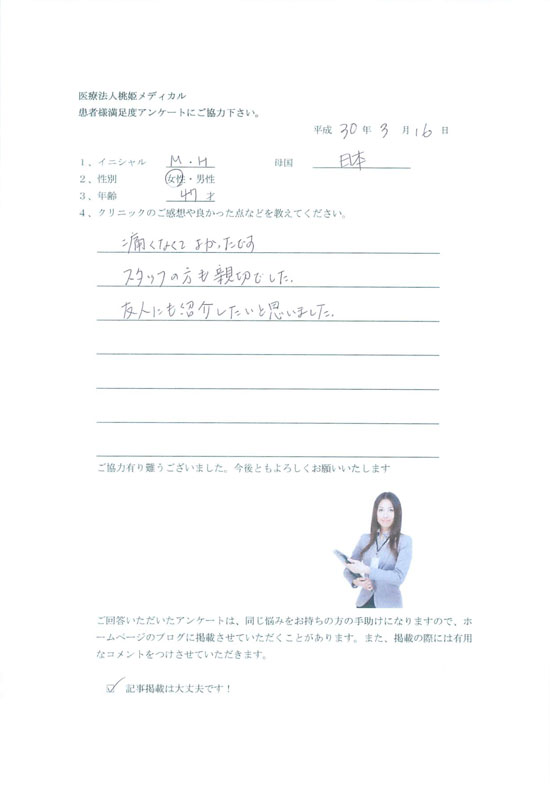 医療法人桃姫メディカル
患者様満足度アンケートにご協力下さい。
平成 30 年 3 月 16 日
1、イニシャル M・H 母国 日本
2、性別 女性・男性
3、年齢 47 才
4、クリニックのご感想や良かった点などを教えてください。
痛くなくてよかったです
スタッフの方も親切でした。
友人にも紹介したいと思いました。
ご協力有り難うございました。今後ともよろしくお願いいたします
ご回答いただいたアンケートは、同じ悩みをお持ちの方の手助けになりますので、ホ
ームページのブログに掲載させていただくことがあります。また、掲載の際には有用
なコメントをつけさせていただきます。
☑ 記事掲載は大丈夫です！